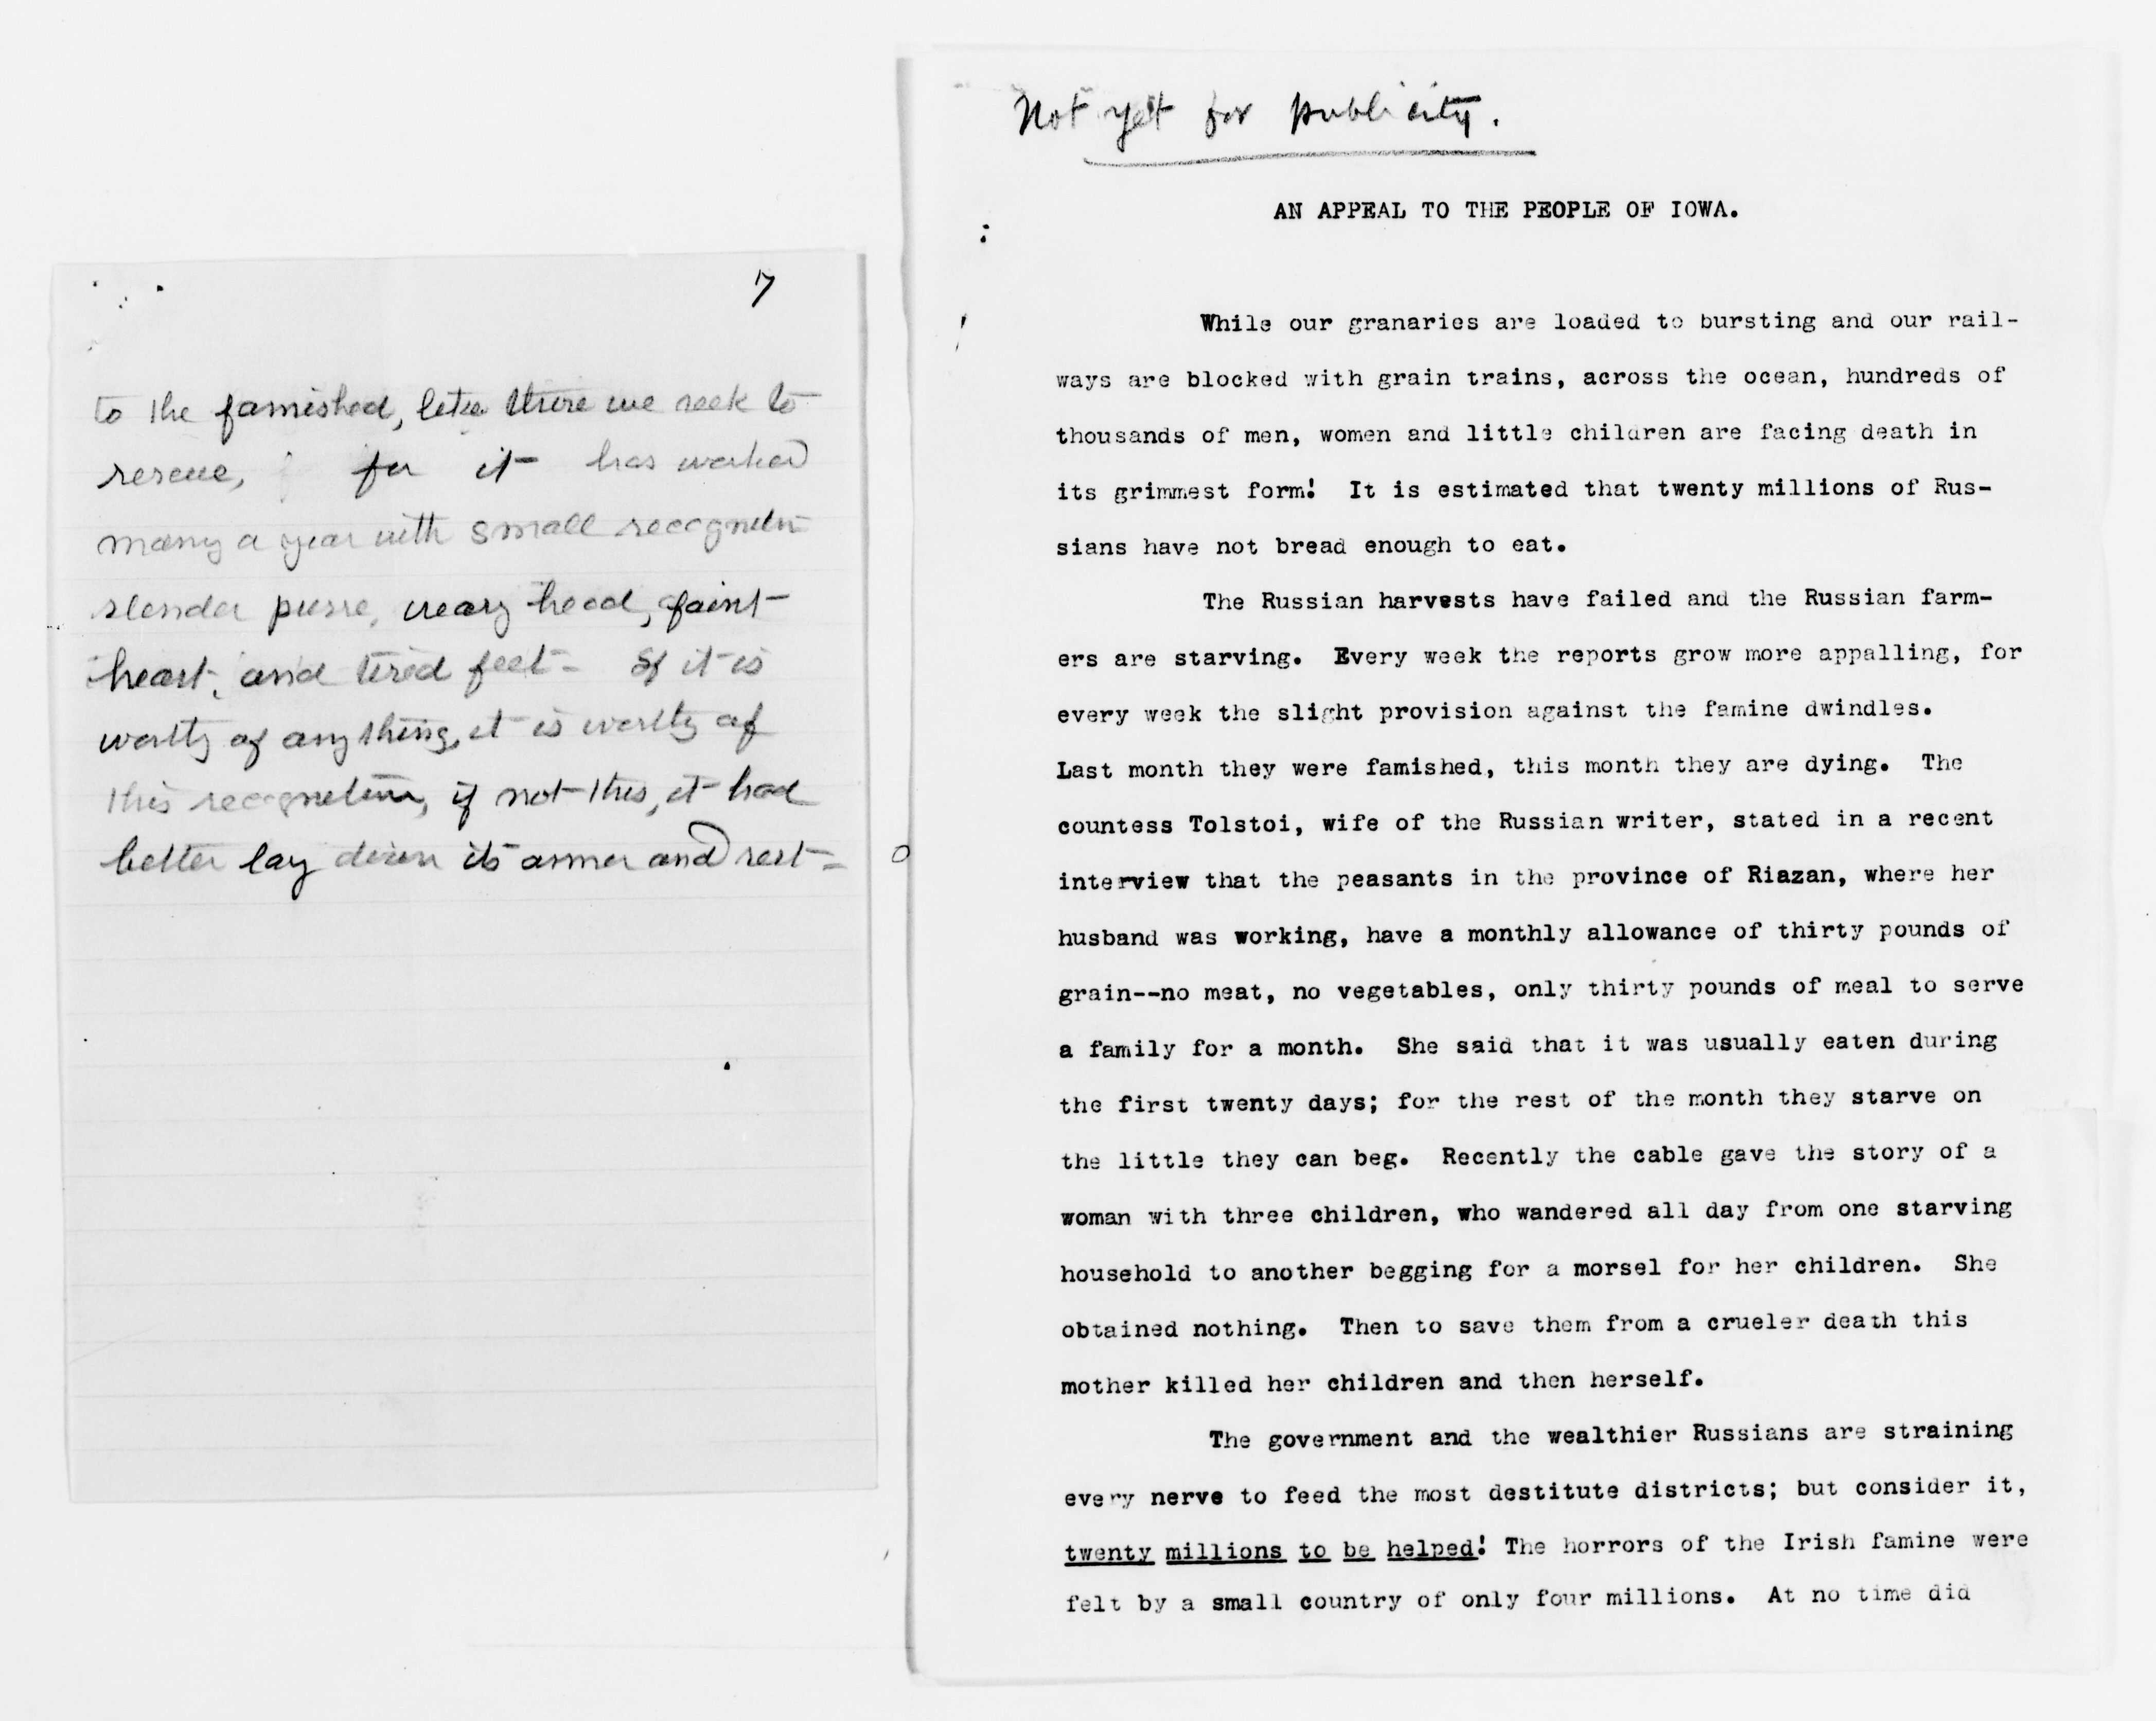 7
to the famished, like those we seek to
rescue, for it has worked
many a year with small recognition
slender purse, weary head, faint
heart, and tired feet - If it is
worthy of anything, it is worthy of
this recognition, if not this, it had
better lay down its armor and rest -
Not yet for publicity.
AN APPEAL TO THE PEOPLE OF IOWA.
While our granaries are loaded to bursting and our rail-
ways are blocked with grain trains, across the ocean, hundreds of
thousands of men, women and little children are facing death in
its grimmest form! It is estimated that twenty millions of Rus-
sians have not bread enough to eat.
The Russian harvests have failed and the Russian farm-
ers are starving. Every week the reports grow more appalling, for
every week the slight provision against the famine dwindles.
Last month they were famished, this month they are dying. The
countess Tolstoi, wife of the Russian writer, stated in a recent
interview that the peasants in the province of Riazan, where her
husband was working, have a monthly allowance of thirty pounds of
grain--no meat, no vegetables, only thirty pounds of meal to serve
a family for a month. She said that it was usually eaten during
the first twenty days; for the rest of the month they starve on
the little they can beg. Recently the cable gave the story of a
woman with three children, who wandered all day from one starving
household to another begging for a morsel for her children. She
obtained nothing. Then to save them from a crueler death this
mother killed her children and then herself.
The government and the wealthier Russians are straining
every nerve to feed the most destitute districts; but consider it,
twenty millions to be helped! The horrors of the Irish famine were
felt by a small country of only four millions. At no time did